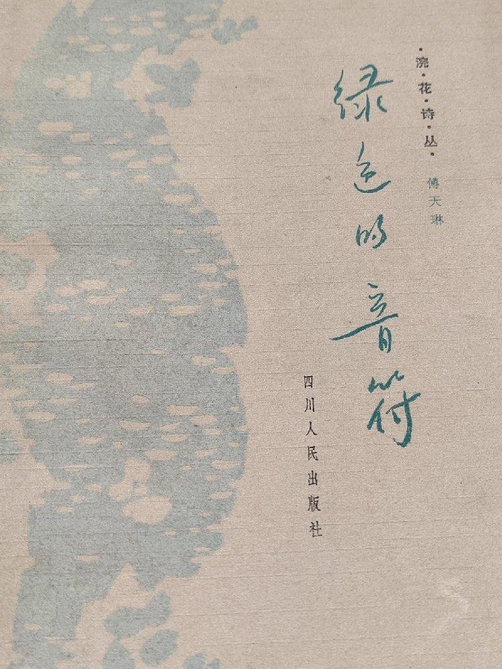 ·浣·花·诗·丛·
傅天琳
绿色的音符
四川人民出版社